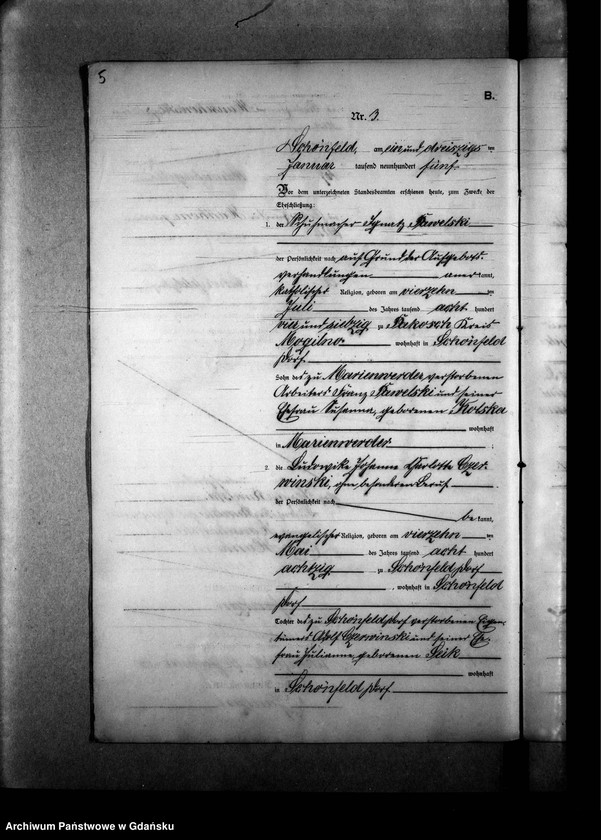 5
B.
Nr. 3.
Schönfeld, am ein und dreizigs ten
Januar tausend neunhundert fünf
Vor dem unterzeichneten Standesbeamten erschienen heute, zum Zwecke der
Eheschließung:
1. der Schuhmacher Ignatz Pawelski
der Persönlichkeit nach auf Grund der Aufgebots-
verhandlungen aner kannt,
katholischer Religion, geboren am vierzehn ten
Juli des Jahres tausend acht hundert
vier und siebzig zu Pakosch Kreis
Mogilno wohnhaft in Schönfeld
Dorf.
Sohn des zu Marienwerder verstorbenen
Arbeiters Franz Pawelski und seiner
Ehefrau Susanna, geborenen Kolska
wohnhaft
in Marienwerder ;
2. die Ludowika Johanne Charlotte Czer-
winski, ohne besonderen Beruf
der Persönlichkeit nach
be kannt,
evangelischer Religion, geboren am vierzehn ten
Mai des Jahres tausend acht hundert
achtzig zu Schönfeld Dorf
, wohnhaft in Schönfeld
Dorf
Tochter des zu Schönfeld Dorf verstorbenen Eigen-
tümers Adolf Czerwinski und seiner Ehe-
frau Julianne, geborenen Seik
wohnhaft
in Schönfeld Dorf.
Archiwum Państwowe w Gdańsku